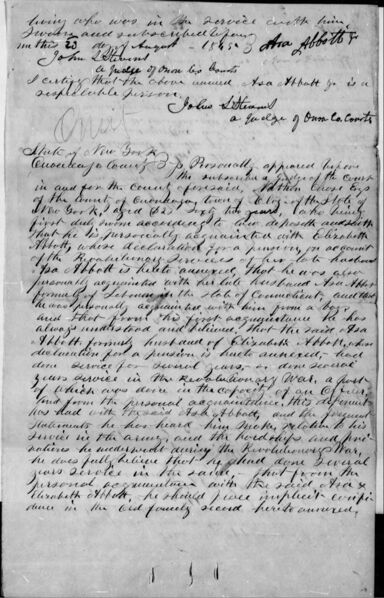 living who was in the service with him,
Sworn and subscribed before
me this 23 day of August 1845 Asa Abbott Jr
John L Stevens
a Judge of Onon Co Courts
I certify that the above named Asa Abbott Jr is a
respectable person,
John L Stevens
a Judge of Onon Co. Courts
State of New York
Onondaga County SS Personally appeared before
the subscriber a Judge of the Court
in and for the County aforesaid, Nathan
of the County of Onondaga, town of of the State of
New York, aged sixty two years, who being
first duly sworn according to law deposeth and saith
that he is personally acquainted with Elizabeth
Abbott, whose declaration for a pension, on account
of the Revolutionary services of her late husband
Asa Abbott is hereto annexed, that he was also
personally acquainted with her late husband Asa Abbott
formerly of Lebanon in the state of Connecticut, and that
he was personally acquainted with him from a boy,
and that from his first acquaintance he has
always understood and believed, that the said Asa
Abbott, formerly husband of Elizabeth Abbott, whose
declaration for a pension is hereto annexed, had
done service for several years, or done several
years service in the Revolutionary War, a part
of which was done in the capacity of an Officer
and for the personal acquaintance this deponent
has had with the said Asa Abbott, and the frequent
statements he has heard him make relative to his
service in the army, and the hardships and pri-
vations he underwent during the Revolutionary War,
he does fully believe that he had done several
years service in the same. that from the
personal acquaintance with the said Asa &
Elizabeth Abbott, he should place implicit confi-
dence in the old family record hereto annexed,